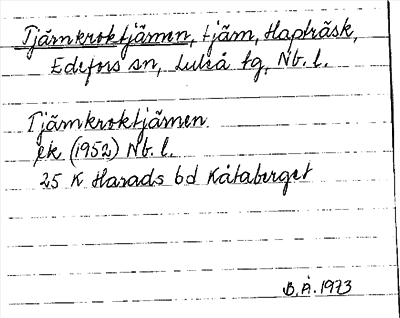 Tjämkroktjämen, tjäm, Hapträsk,
Edefors sn, Luleå tg, Nb. l.
Tjämkroktjämen.
ek (1952) Nb. l.
25 K Harads 6d Kåtaberget
B. Å. 1973